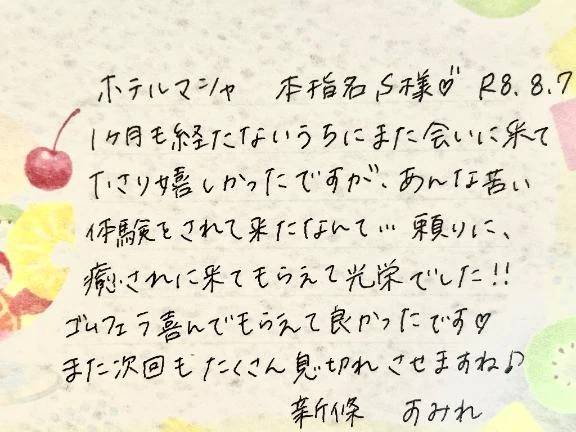 ホテルマシャ 本指名 S様♡ R8.8.7
1ヶ月も経たないうちにまた会いに来て
下さり嬉しかったですが、あんな苦い
体験をされて来たなんて… 頼りに、
癒されに来てもらえて光栄でした!!
ゴムフェラ喜んでもらえて良かったです♡
また次回もたくさん息切れさせますね♪
新條 すみれ